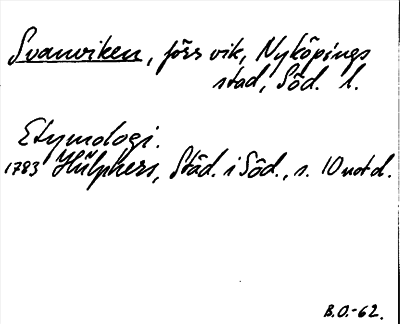 Svanviken, förs vik, Nyköpings
stad, Söd. l.
Etymologi.
1783 Hülphers, Städ. i Söd., s. 10 not d.
B.O.-62.